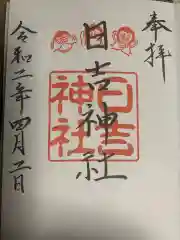 奉拝
日吉神社
日吉神社
令和二年四月二日